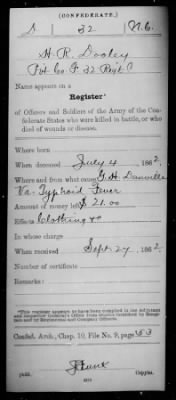 (CONFEDERATE.)
D 32 N.C.
H. R. Dooley
Pvt Co. F. 32 Regt
Name appears on a
Register*
of Officers and Soldiers of the Army of the Confederate States who were killed in battle, or who died of wounds or disease.
Where born
When deceased July 4, 1862
Where and from what cause G. H. Danville
Va. Typhoid Fever
Amount of money left $ 21.00
Effects Clothing &c
In whose charge
When received Sept. 27, 1862
Number of certificate
Remarks:
*This register appears to have been compiled in the Adjutant and Inspector General's Office from reports furnished by Hospitals and by Regimental and Company Officers.
Confed. Arch., Chap. 10, File No. 9, page 53
Copyist.